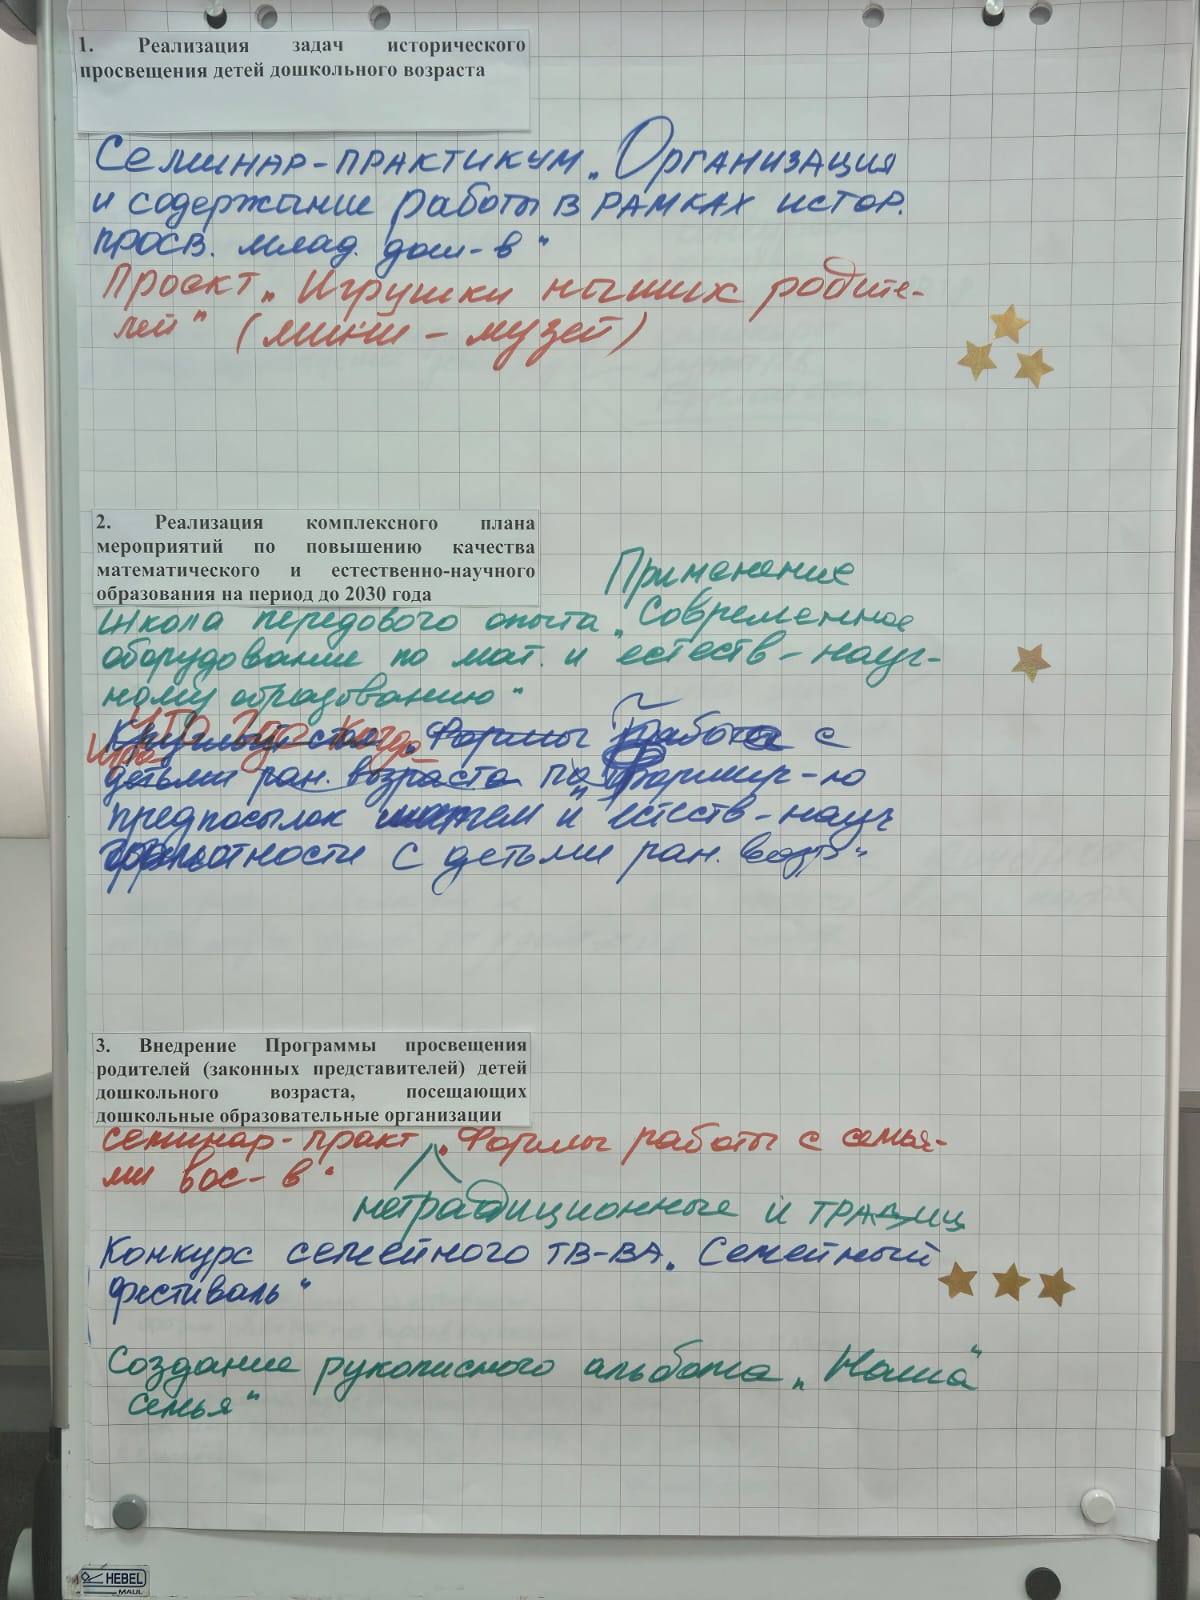 1. Реализация задач исторического
просвещения детей дошкольного возраста
Семинар-практикум „Организация
и содержание работы в рамках истор.
просв. млад. дош-в“
Проект „Игрушки наших родите-
лей“ (мини-музей)
2. Реализация комплексного плана
мероприятий по повышению качества
математического и естественно-научного
образования на период до 2030 года
Применение
Школа передового опыта „Современное
оборудование по мат. и естеств-науч-
ному образованию“
Что Где Когда
Игра
Круглый стол „Формы работа с
детьми ран. возраста по формир-ю
предпосылок матем и естеств-науч
грамотности с детьми ран. возр“
3. Внедрение Программы просвещения
родителей (законных представителей) детей
дошкольного возраста, посещающих
дошкольные образовательные организации
семинар-практ „Формы работы с семья-
ми вос-в“
нетрадиционные и традиц
Конкурс семейного тв-ва „Семейный
фестиваль“
Создание рукописного альбома „Наша“
семья“
HEBEL
MAUL